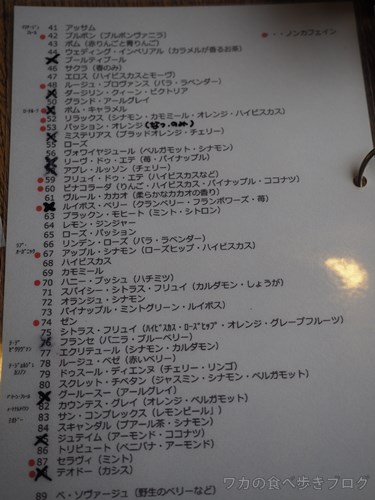 ・・ノンカフェイン
41 アッサム
42 ブルボン(ブルボンヴァニラ)
43 ポム(赤りんごと青りんご)
44 ウェディング・インペリアル(カラメルが香るお茶)
プールティプール
46 サクラ(春のみ)
47 エロス(ハイビスカスとモーヴ)
48 ルージュ・プロヴァンス(バラ・ラベンダー)
ダージリン・クィーン・ビクトリア
50 グランド・アールグレイ
ポム・キャラメル
52 リラックス(シナモン・カモミール・オレンジ・ハイビスカス)
53 パッション・オレンジ
ミステリアス(ブラッドオレンジ・チェリー)
55 ローズ
56 ヴォワイヤジュール(ベルガモット・シナモン)
リーヴ・ドゥ・エテ(苺・パイナップル)
アプレ・ルッソン(チェリー)
59 フリュイ・ドゥ・エテ(ハイビスカスなど)
60 ピナコラーダ(りんご・ハイビスカス・パイナップル・ココナツ)
61 ヴルール・カカオ(柔らかなカカオの香り)
ルイボス・ベリー(クランベリー・フランボワーズ・苺)
63 ブラックン・モヒート(ミント・シトロン)
64 レモン・ジンジャー
65 ローズ・パッション
66 リンデン・ローズ(バラ・ラベンダー)
67 アップル・シナモン(ローズヒップ・ハイビスカス)
68 ハイビスカス
69 カモミール
70 ハニー・ブッシュ(ハチミツ)
71 スパイシー・シトラス・フリュイ(カルダモン・しょうが)
72 オランジュ・シナモン
73 パイナップル・ミントグリーン・ルイボス)
74 ゼン
75 シトラス・フリュイ(ハイビスカス・ローズヒップ・オレンジ・グレープフルーツ)
フランセ(バニラ・ブルーベリー)
77 エクリチュール(シナモン・カルダモン)
78 ルージュ・ベゼ(赤いベリー)
79 ドゥスール・ディエンヌ(チェリー・リンゴ)
80 スクレット・チベタン(ジャスミン・シナモン・ベルガモット)
グールースー(アールグレイ)
82 カウンテス・グレイ(オレンジ・ベルガモット)
83 サン・コンプレックス(レモンピール))
84 スキャンダル(プアール茶・シナモン)
ジュテイム(アーモンド・ココナツ)
86 トリビュート(ベニバナ・アーモンド)
87 セラヴィ(ミント)
テオドー(カシス)
89 ベ・ソヴァージュ(野生のベリーなど)
ワカの食べ歩きブログ